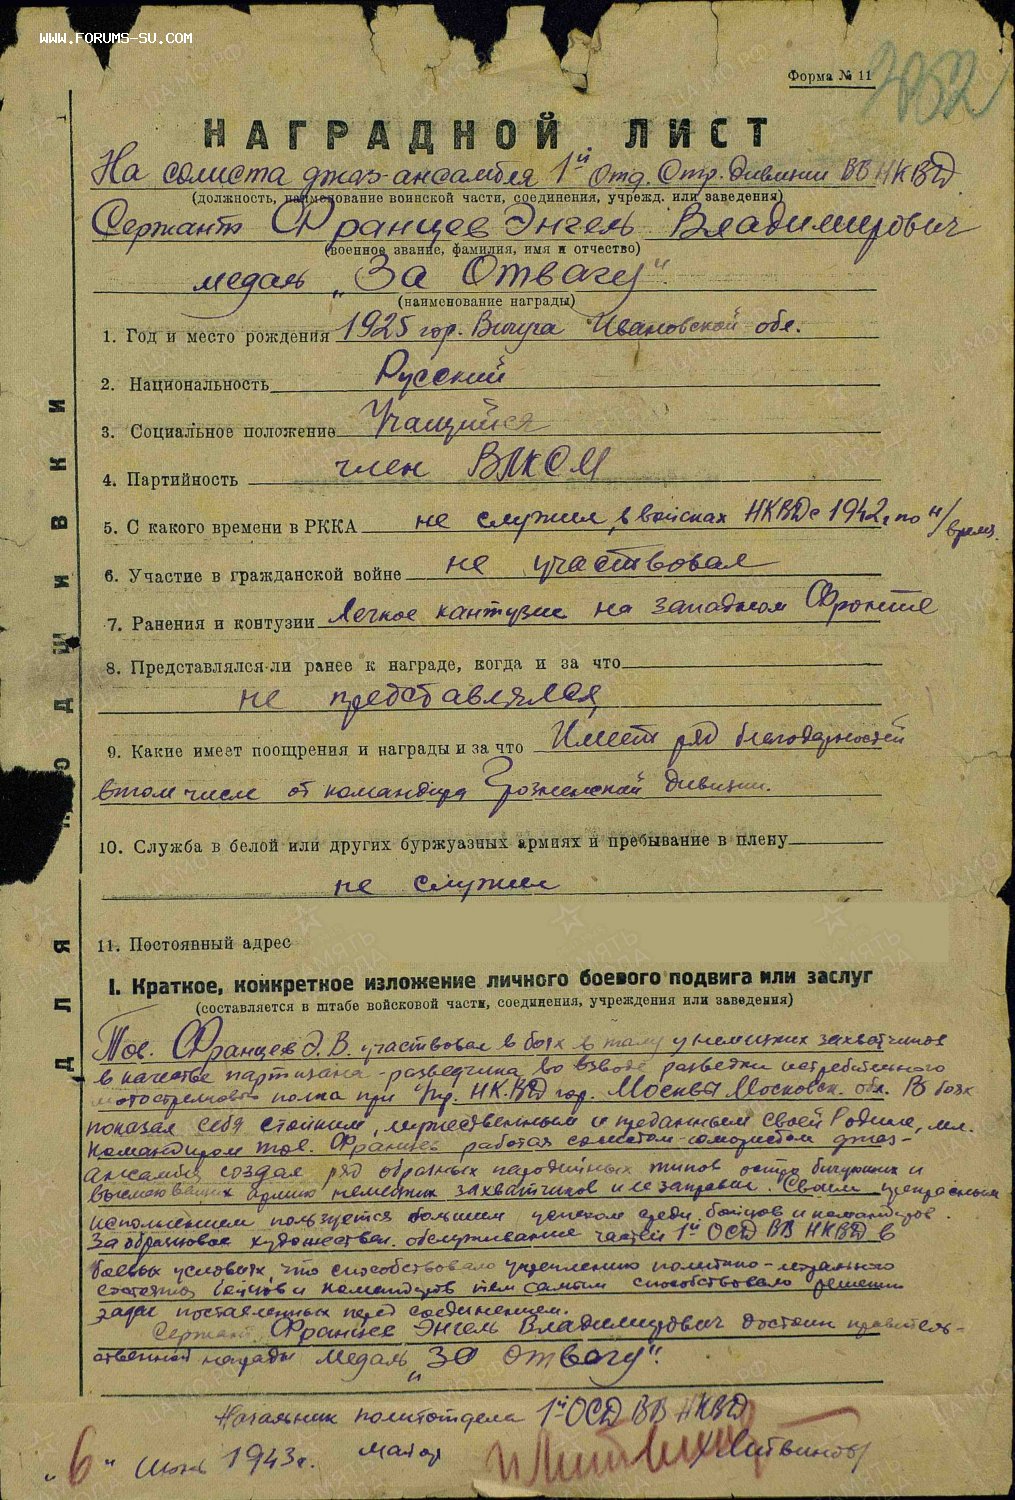 WWW.FORUMS-SU.COM
Форма № 11
2052
НАГРАДНОЙ ЛИСТ
На солиста джаз-ансамбля 1й Отд. Стр. Дивизии ВВ НКВД
(должность, наименование воинской части, соединения, учрежд. или заведения)
Сержант Францев Энгель Владимирович
(военное звание, фамилия, имя и отчество)
медаль „За Отвагу"
(наименование награды)
1. Год и место рождения 1925 гор. Вичуга Ивановской обл.
2. Национальность Русский
3. Социальное положение Учащийся
4. Партийность член ВЛКСМ
5. С какого времени в РККА не служил, в войсках НКВД с 1942 г. по н/время.
6. Участие в гражданской войне не участвовал
7. Ранения и контузии Легкое кантузие на западном Фронте
8. Представлялся-ли ранее к награде, когда и за что
не представлялся
9. Какие имеет поощрения и награды и за что Имеет ряд благодарностей
в том числе от командира Грозненской дивизии.
10. Служба в белой или других буржуазных армиях и пребывание в плену
не служил
11. Постоянный адрес
ДЛЯ ПОДШИВКИ
I. Краткое, конкретное изложение личного боевого подвига или заслуг
(составляется в штабе войсковой части, соединения, учреждения или заведения)
Тов. Францев Э.В. участвовал в боях в тылу у немецких захватчиков
в качестве партизана-разведчика во взводе разведки истребительного
мотострелкового полка при Упр. НКВД гор. Москвы Московск. обл. В боях
показал себя стойким, мужественным и преданным своей Родине, мл.
командиром тов. Францев работая солистом-юмористом джаз-
ансамбля создал ряд образных пародийных типов остро бичующих и
высмеивающих армию немецких захватчиков и их заправил. Своим прекрасным
исполнением пользуется большим успехом среди бойцов и командиров.
За образцовое художествен. обслуживание частей 1й ОСД ВВ НКВД в
боевых условиях, что способствовало укреплению политико-морального
состояния бойцов и командиров тем самым способствовало решению
задач поставленных перед соединением.
Сержант Францев Энгель Владимирович достоин правитель-
ственной награды медаль „За отвагу".
Начальник политотдела 1й ОСД ВВ НКВД
майор Литвинов
„6" Июня 1943 г.